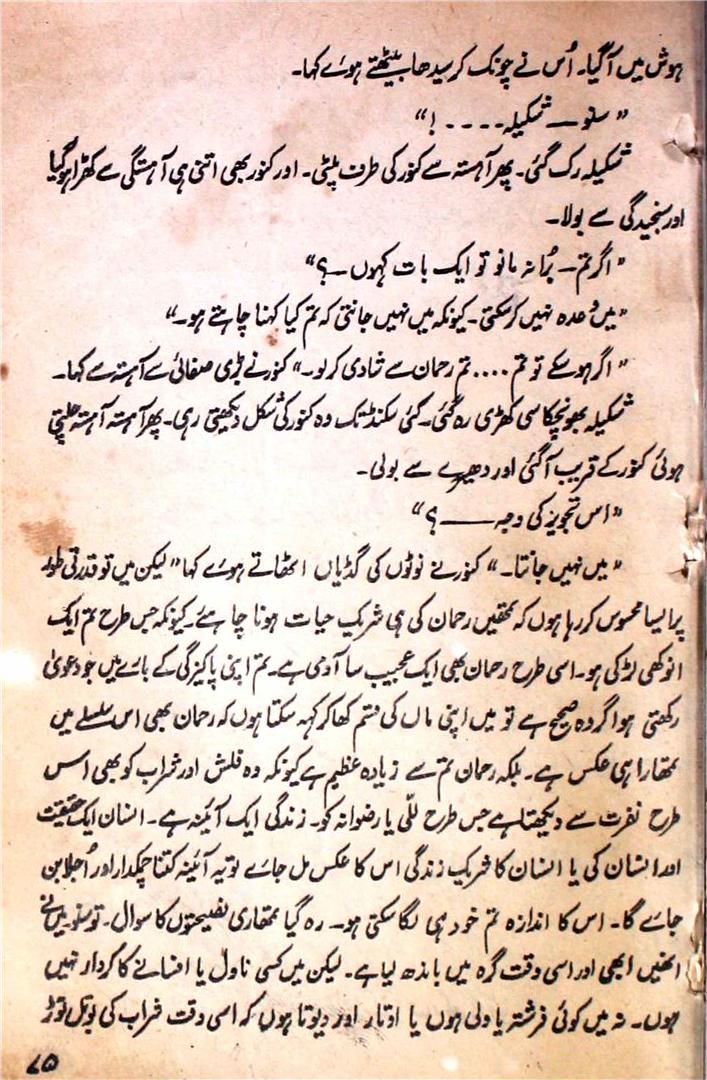 ہوش میں آگیا۔ اُس نے چونک کر سیدھا بیٹھتے ہوئے کہا۔
”سنو — شکیلہ ۔۔۔۔ !“
شکیلہ رک گئی۔ پھر آہستہ سے کنور کی طرف پلٹی۔ اور کنور بھی اتنی ہی آہستگی سے کھڑا ہوگیا
اور سنجیدگی سے بولا۔
”اگر تم — بُرا نہ مانو تو ایک بات کہوں —؟“
”میں وعدہ نہیں کرسکتی۔ کیونکہ میں نہیں جانتی کہ تم کیا کہنا چاہتے ہو۔“
”اگر ہوسکے تو تم .... تم رحمان سے شادی کرلو۔“ کنور نے بڑی صفائی سے آہستہ سے کہا۔
شکیلہ بھونچکا سی کھڑی رہ گئی۔ کئی سکنڈ تک وہ کنور کی شکل دیکھتی رہی۔ پھر آہستہ آہستہ چلتی
ہوئی کنور کے قریب آگئی اور دھیرے سے بولی۔
”اس تجویز کی وجہ —— ؟“
”میں نہیں جانتا۔“ کنور نے نوٹوں کی گڈیاں اٹھاتے ہوئے کہا ”لیکن میں تو قدرتی طور
پر ایسا محسوس کررہا ہوں کہ تمھیں رحمان کی ہی شریکِ حیات ہونا چاہئے۔ کیونکہ جس طرح تم ایک
انوکھی لڑکی ہو۔ اسی طرح رحمان بھی ایک عجیب سا آدمی ہے۔ تم اپنی پاکیزگی کے بارے میں جو دعویٰ
رکھتی ہو اگر وہ صحیح ہے تو میں اپنی ماں کی قسم کھا کر کہہ سکتا ہوں کہ رحمان بھی اس سلسلے میں
تمھارا ہی عکس ہے۔ بلکہ رحمان تم سے زیادہ عظیم ہے کیونکہ وہ فلش اور شراب کو بھی اسی
طرح نفرت سے دیکھتا ہے جس طرح للّی یا رضوانہ کو۔ زندگی ایک آئینہ ہے۔ انسان ایک حقیقت
اور انسان کی یا انسان کا شریک زندگی اس کا عکس مل جائے تو یہ آئینہ کتنا چمکدار اور اُجلا بن
جائے گا۔ اس کا اندازہ تم خود ہی لگا سکتی ہو۔ رہ گیا تمھاری نصیحتوں کا سوال۔ تو سنو میں نے
انھیں ابھی اور اسی وقت گرہ میں باندھ لیا ہے۔ لیکن میں کسی ناول یا افسانے کا کردار نہیں
ہوں۔ نہ میں کوئی فرشتہ یا ولی ہوں یا اوتار اور دیوتا ہوں کہ اسی وقت شراب کی بوتل توڑ
۷۵